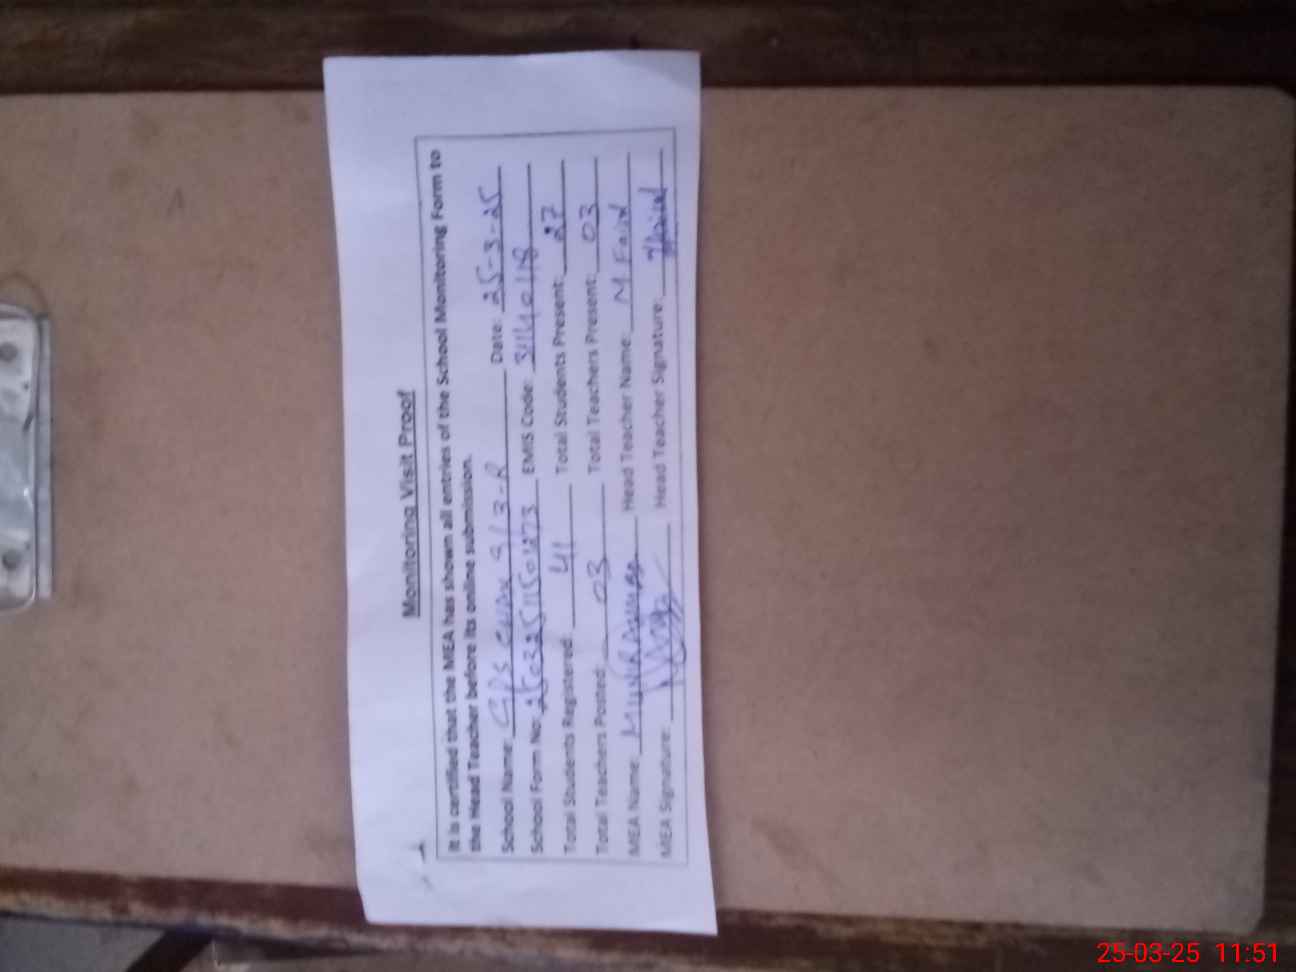 Monitoring Visit Proof
It is certified that the MEA has shown all entries of the School Monitoring Form to
the Head Teacher before its online submission.
School Name: GPS CHAK 9/3-R Date: 25-3-25
School Form No: EMIS Code:
Total Students Registered: 41 Total Students Present: 27
Total Teachers Posted: 03 Total Teachers Present: 03
MEA Name: Head Teacher Name: M Farid
MEA Signature: Head Teacher Signature:
25-03-25 11:51